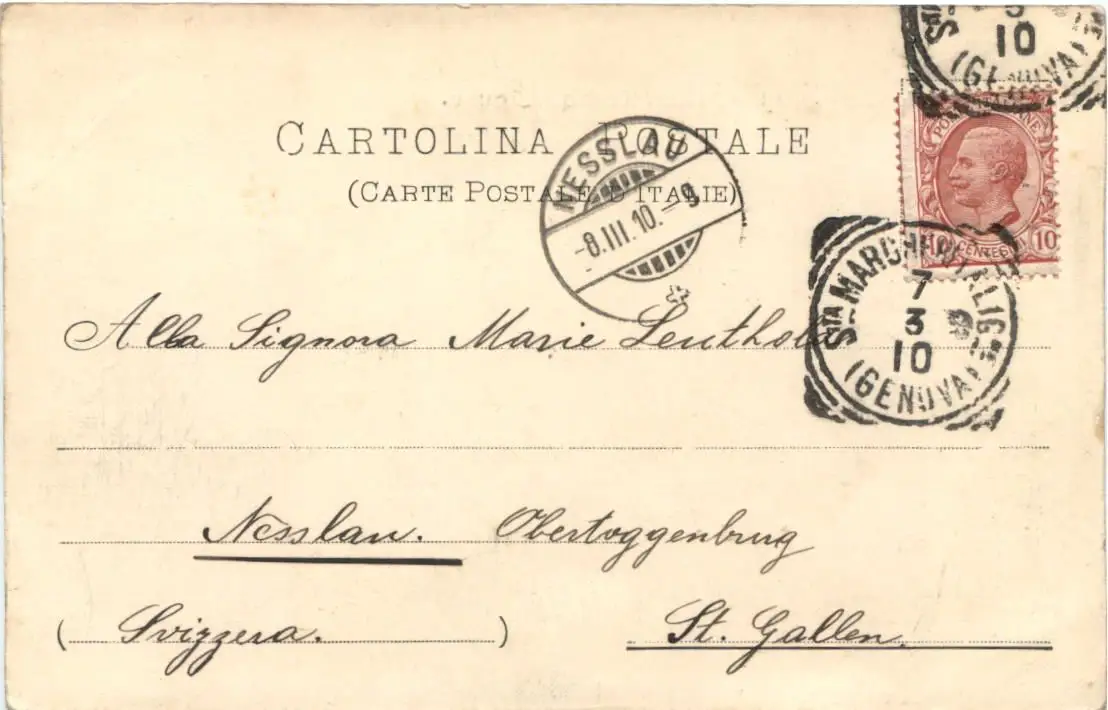 CARTOLINA POSTALE
(CARTE POSTALE D'ITALIE)
NESSLAU
-8.III.10.-9
POSTE ITALIANE
10 CENTESIMI 10
STA MARGHERITA LIGRE
7
3
10
(GENOVA)
STA
10
(GENOVA)
Alla Signora Marie Leuthold
Nesslau. Obertoggenburg
(Svizzera.)
St. Gallen.